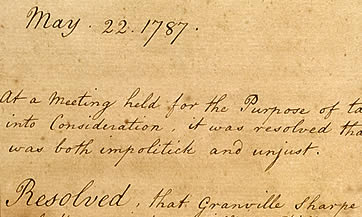 May. 22. 1787.
At a Meeting held for the Purpose of ta
into Consideration, it was resolved tha
was both impolitick and unjust.
Resolved, that Granville Sharpe